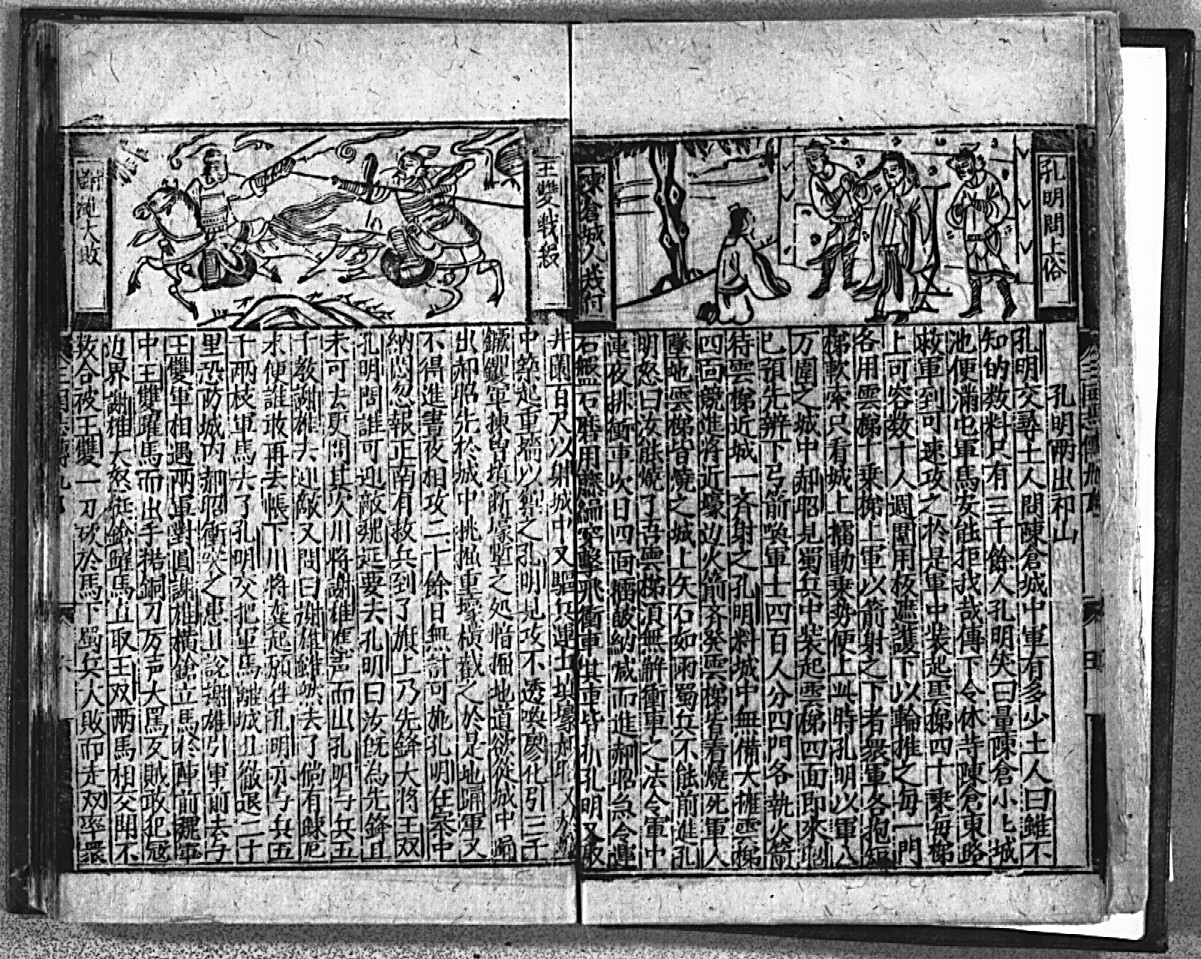 孔明問土俗
陳倉城人幾何
孔明兩出祁山
孔明交尋土人問陳倉城中軍有多少土人曰雖不
知的数料只有三千餘人孔明笑曰量陳倉小上城
池便滿屯軍馬安能拒我哉傳下令休等陳倉東路
救軍到可速攻之於是軍中装起雲梯四十乗每梯
上可容数十人週圍用板遮護下以輪推之每一門
各用雲梯十乗梯上軍以箭射之下者衆軍各抱短
梯軟索只看城上擂動乗势便上此時孔明以軍八
万圍之城中郝昭見蜀兵中装起雲梯四面即來
已預先辨下弓箭喚軍士四百人分四門各執火箭
待雲梯近城一斉射之孔明料城中無備大擁雲梯
四面競進將近壕边火箭斉発雲梯皆着燒死軍人
墜地雲梯皆燒之城上矢石如雨蜀兵不能前進孔
明怒曰汝能燒了吾雲梯須無觧衝車之法令軍中
連夜排衝車次日四面擂皷納喊而進郝昭急令運
石鑿石磨用藤編穿擊飛衝車其車皆折孔明又取
王雙戰殺
謝雄大敗
井闌百尺以射城中又驅兵運土填壕
中築起重墻以禦之孔明見攻不透喚廖化引三千
鍬钁軍揀皆填断壕塹之処暗掘地道欲從城中
出郝昭先於城中挑掘重壕橫截之於是地踊軍又
不得進晝夜相攻二十餘日無計可施孔明在寨中
納悶忽報正南有救兵到了旗上乃先鋒大將王双
孔明問誰可迎敵魏延要去孔明曰汝既為先鋒且
未可去更問其次川將謝雄應声而出孔明与兵五
千教謝雄去迎敵又問曰謝雄雖然去了倘有踈危
求便誰敢再去帳下川將龔起願往孔明亦与兵五
千兩枝軍馬去了孔明交把軍馬離城且徹退二十
里恐防城内郝昭衝突之患且説謝雄引軍前去与
王雙軍相遇兩軍對圓謝雄橫鎗立馬於陣前
中王雙躍馬而出手猪銅刀厉声大罵反賊敢犯冦
边界謝雄大怒挺鎗躍馬直取王双两馬相交閗不
数合被王雙一刀砍於馬下蜀兵人敗而走双率衆